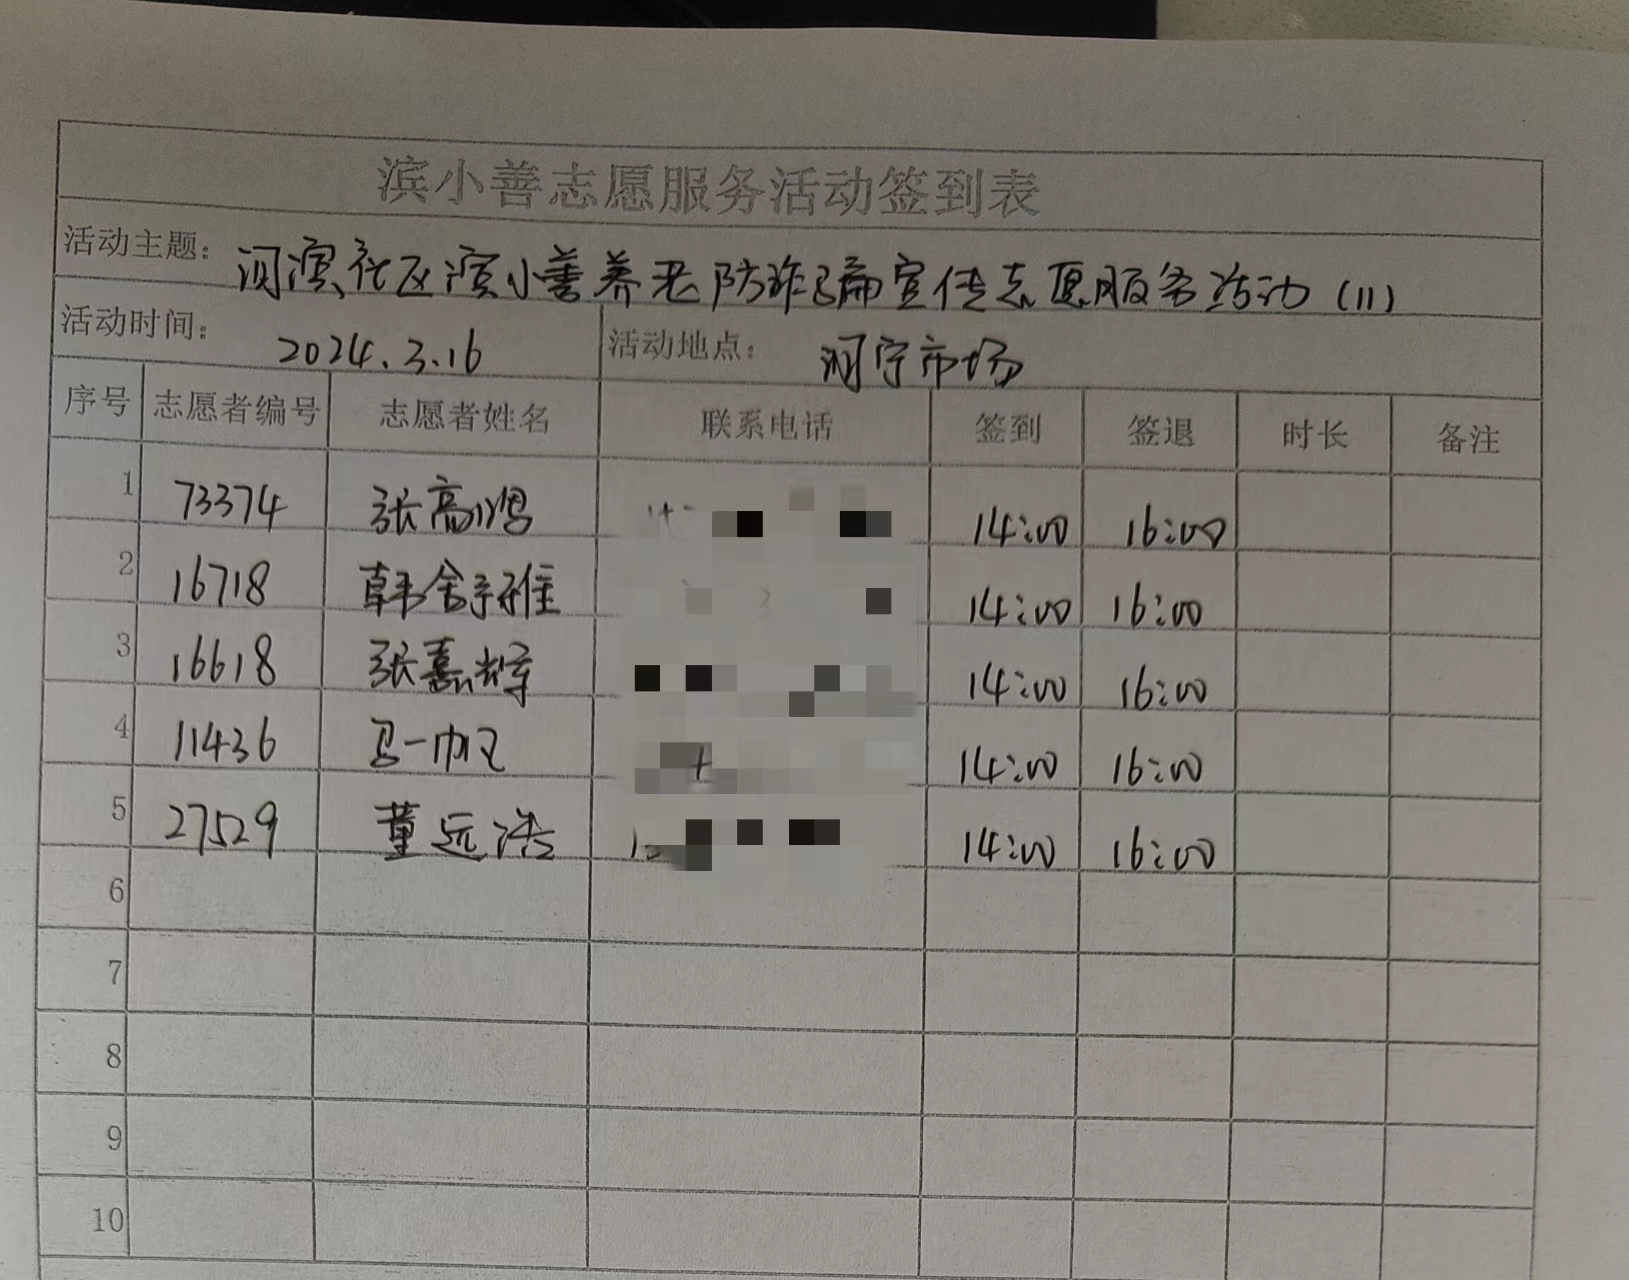 滨小善志愿服务活动签到表
活动主题： 河滨社区滨小善养老防诈骗宣传志愿服务活动（11）
活动时间： 2024.3.16 活动地点： 河宁市场
序号 志愿者编号 志愿者姓名 联系电话 签到 签退 时长 备注
1 73374 张高 14:00 16:00
2 16718 韩舍予雅 14:00 16:00
3 16618 张嘉辉 14:00 16:00
4 11436 马一帆 14:00 16:00
5 27529 董远浩 14:00 16:00
6
7
8
9
10